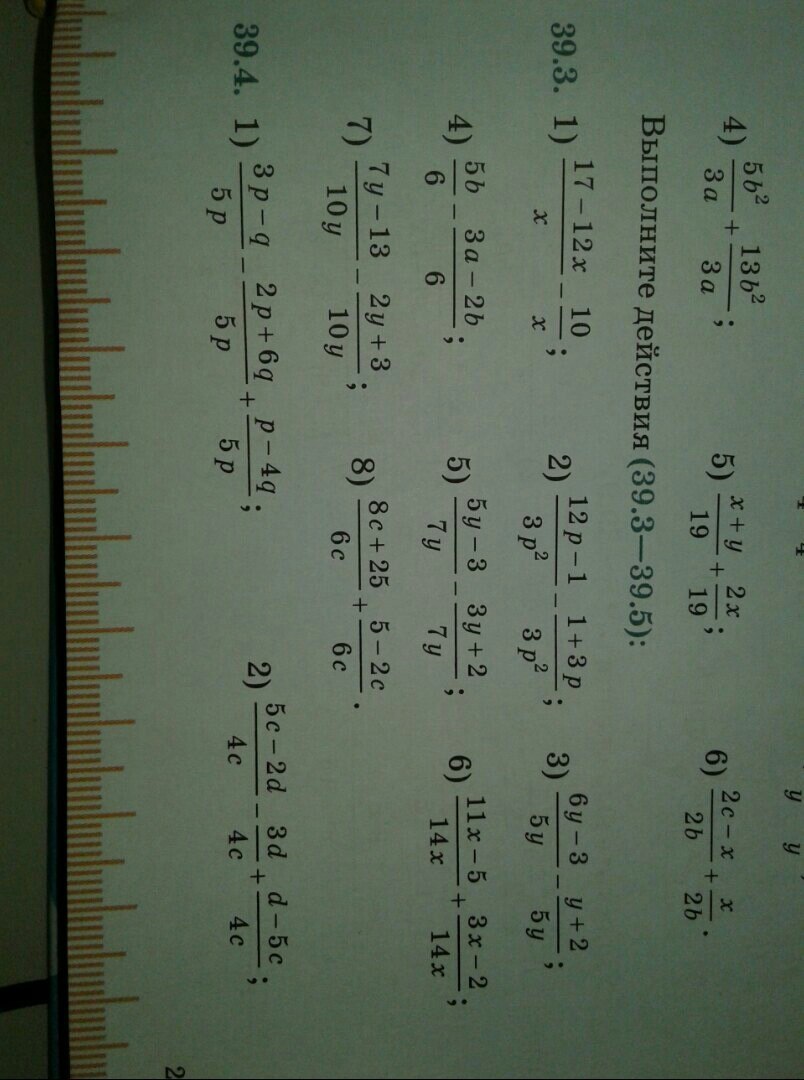 4) 5b²/3a + 13b²/3a; 5) x+y/19 + 2x/19; 6) 2c−x/2b + x/2b.
Выполните действия (39.3—39.5):
39.3. 1) 17−12x/x − 10/x; 2) 12p−1/3p² − 1+3p/3p²; 3) 6y−3/5y − y+2/5y;
4) 5b/6 − 3a−2b/6; 5) 5y−3/7y − 3y+2/7y; 6) 11x−5/14x + 3x−2/14x;
7) 7y−13/10y − 2y+3/10y; 8) 8c+25/6c + 5−2c/6c.
39.4. 1) 3p−q/5p − 2p+6q/5p + p−4q/5p; 2) 5c−2d/4c − 3d/4c + d−5c/4c;
2